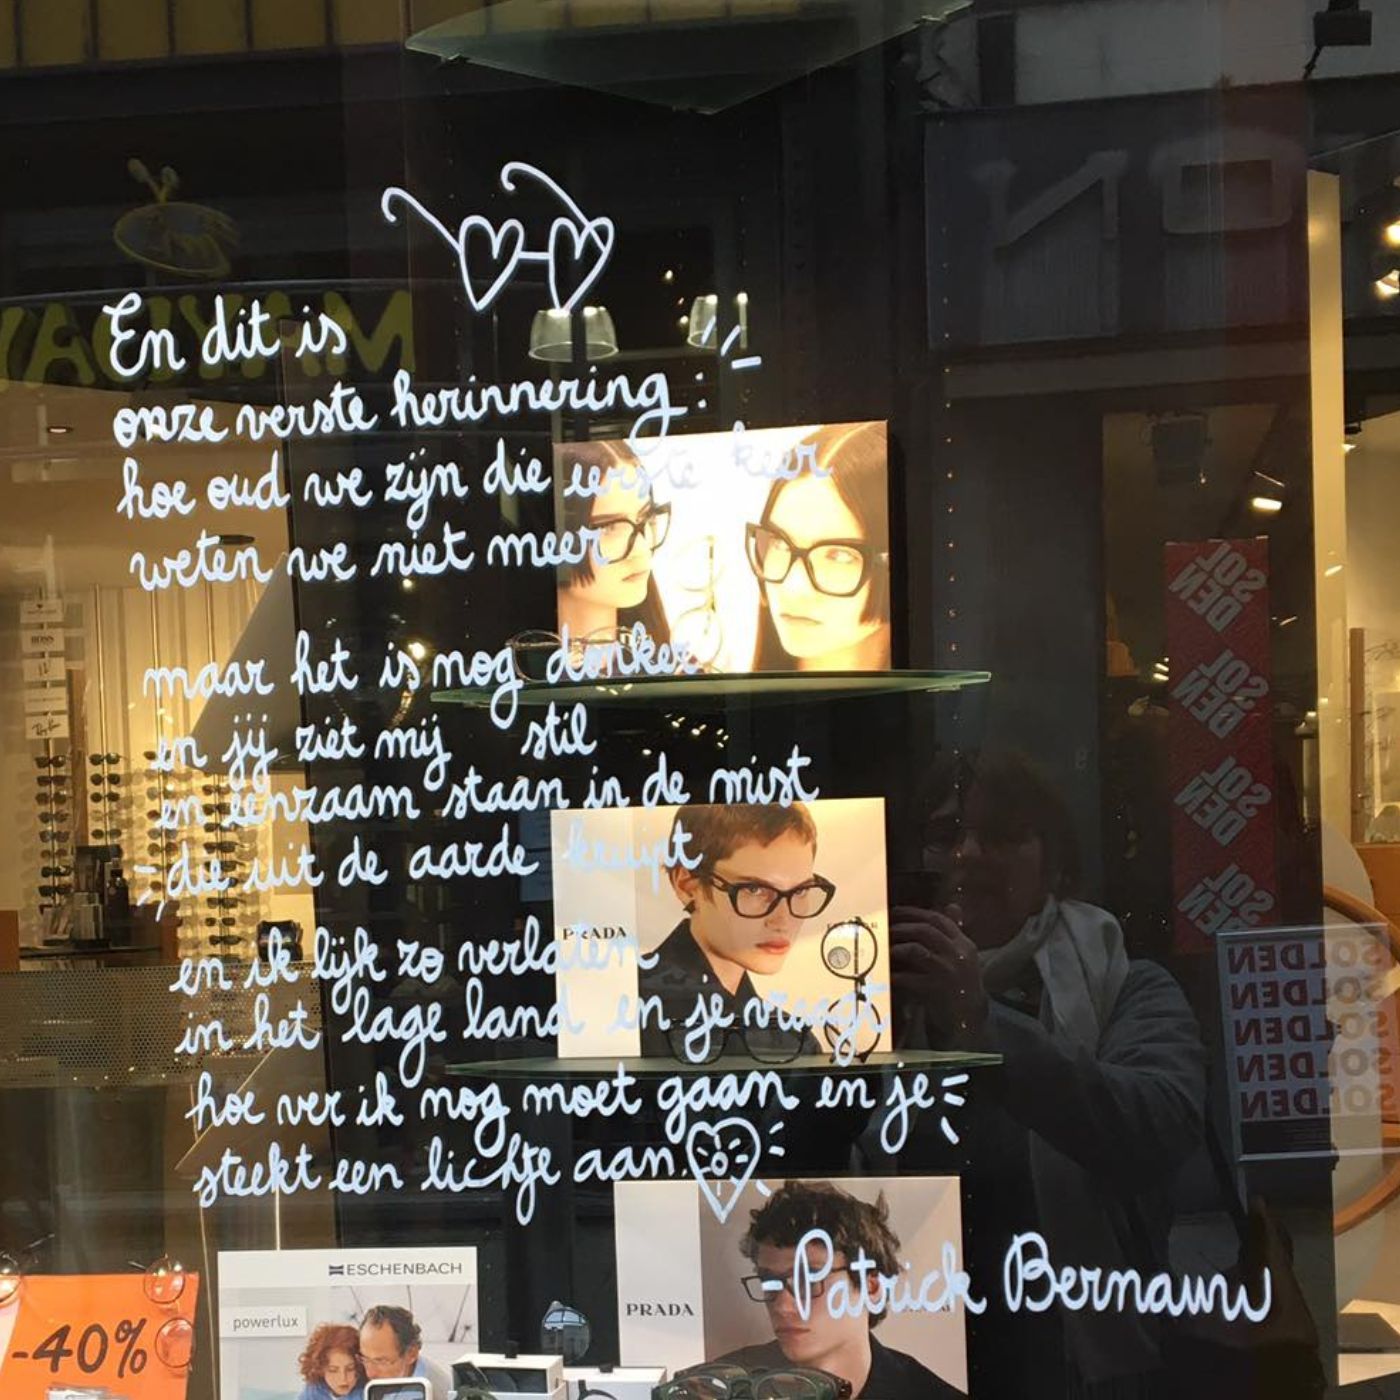 En dit is
onze verste herinnering:
hoe oud we zijn die eerste keer
weten we niet meer
maar het is nog donker
en jij ziet mij stil
en eenzaam staan in de mist
die uit de aarde kruipt
en ik lijk zo verlaten
in het lage land en je vraagt
hoe ver ik nog moet gaan en je
steekt een lichtje aan.
-Patrick Bernauw
PRADA
PRADA
ESCHENBACH
powerlux
-40%
BOSS
Ray-Ban
SOL
DEN
SOL
DEN
SOL
DEN
SOL
DEN
SOLDEN
SOLDEN
SOLDEN
SOLDEN
SOLDEN